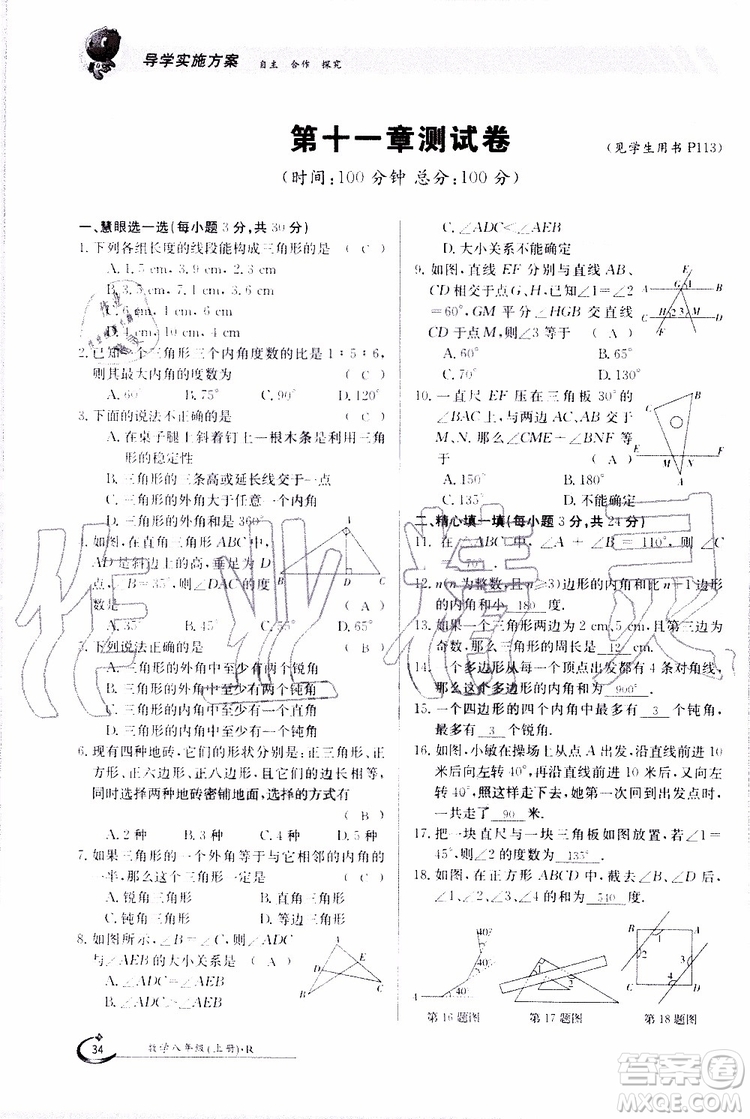 导学实施方案 自主 合作 探究
第十一章测试卷
(见学生用书 P113)
(时间:100 分钟 总分:100 分)
一、慧眼选一选(每小题 3 分,共 30 分)
1. 下列各组长度的线段能构成三角形的是 ( C )
A. 1.5 cm,3.9 cm,2.3 cm
B. 3.5 cm,7.1 cm,3.6 cm
C. 6 cm,1 cm,6 cm
D. 4 cm,10 cm,4 cm
2. 已知一个三角形三个内角度数的比是 1:5:6,
则其最大内角的度数为 ( C )
A. 60° B. 75° C. 90° D. 120°
3. 下面的说法不正确的是 ( C )
A. 在桌子腿上斜着钉上一根木条是利用三角
形的稳定性
B. 三角形的三条高或延长线交于一点
C. 三角形的外角大于任意一个内角
D. 三角形的外角和是 360°
4. 如图,在直角三角形 ABC 中,
AD 是斜边上的高,垂足为 D
点,∠B=35°,则∠DAC 的度
数是 ( A )
A. 35° B. 45° C. 55° D. 65°
5. 下列说法正确的是 ( C )
A. 三角形的内角中至少有两个锐角
B. 三角形的内角中至少有一个钝角
C. 三角形的外角中至少有两个钝角
D. 三角形的外角中至少有一个直角
6. 现有四种地砖,它们的形状分别是:正三角形、正
方形、正六边形、正八边形,且它们的边长相等,
同时选择两种地砖密铺地面,选择的方式有
( B )
A. 2 种 B. 3 种 C. 4 种 D. 5 种
7. 如果三角形的一个外角等于与它相邻的内角的
一半,那么这个三角形是 ( C )
A. 锐角三角形 B. 直角三角形
C. 钝角三角形 D. 等边三角形
8. 如图所示,∠B=∠C,则∠ADC
与∠AEB 的大小关系是 ( A )
A. ∠ADC=∠AEB
B. ∠ADC>∠AEB
C. ∠ADC<∠AEB
D. 大小关系不能确定
9. 如图,直线 EF 分别与直线 AB、
CD 相交于点 G、H,已知∠1=∠2
=60°,GM 平分∠HGB 交直线
CD 于点 M,则∠3 等于 ( A )
A. 60° B. 65°
C. 70° D. 130°
10. 一直尺 EF 压在三角板 30°的
∠BAC 上,与两边 AC、AB 交于
M、N. 那么∠CME+∠BNF 等
于 ( A )
A. 150° B. 180°
C. 135° D. 不能确定
二、精心填一填(每小题 3 分,共 24 分)
11. 在△ABC 中,∠A+∠B=110°,则∠C=
70° .
12. n(n 为整数,且 n≥3)边形的内角和比 n-1 边形
的内角和小 180 度.
13. 如果一个三角形两边为 2 cm,5 cm,且第三边为
奇数,则三角形的周长是 12 cm.
14. 一个多边形从每一个顶点出发都有 4 条对角线,
那么这个多边形的内角和为 900° .
15. 一个四边形的四个内角中最多有 3 个钝角,
最多有 3 个锐角.
16. 如图,小敏在广场上从点 A 出发,沿直线前进 10
米后向左转 40°,再沿直线前进 10 米后,又向左
转 40°……照这样走下去,她第一次回到出发地点 A 时,
一共走了 90 米.
17. 把一块直尺与一块三角板如图放置,若∠1=
45°,则∠2 的度数为 135° .
18. 如图,在正方形 ABCD 中,截去∠B、∠D 后,
∠1、∠2、∠3、∠4 的和为 540 度.
第 16 题图 第 17 题图 第 18 题图
34 数学八年级(上册)·R
作业精灵